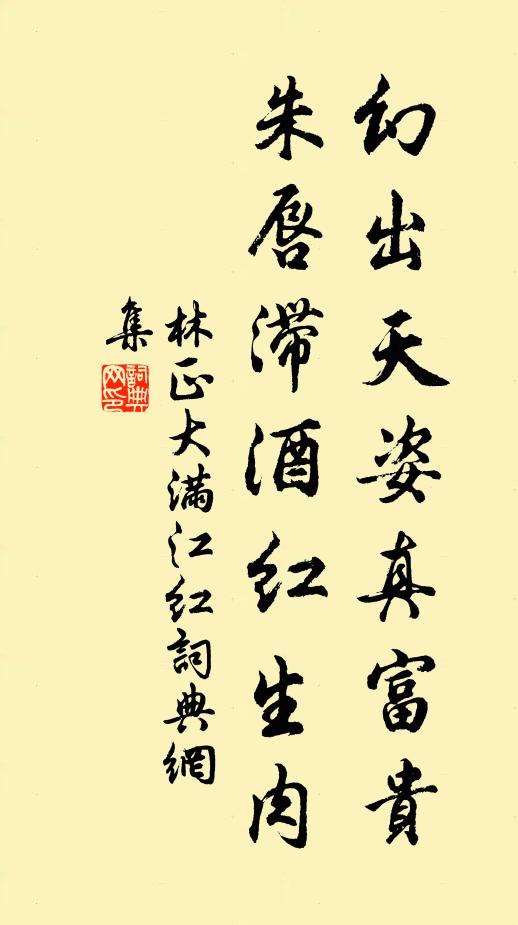 幻出天姿真富貴
朱唇滯酒紅生肉
林正大满江红詞典網
集
詞典
网印